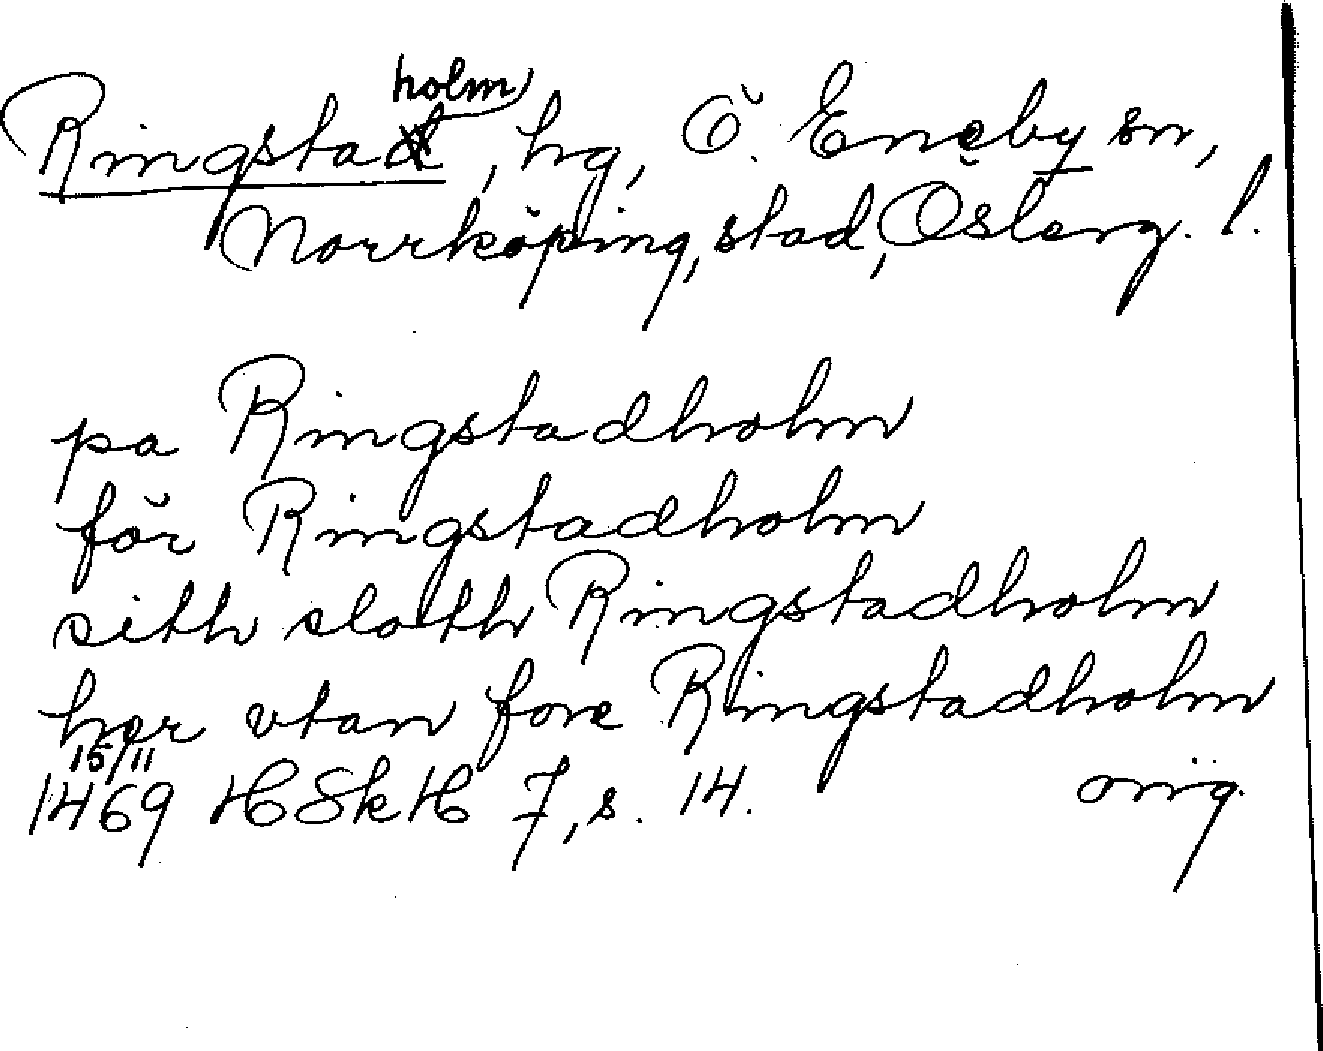 Ringstaholm, hg, Ö. Eneby sn,
Norrköping, stad, Österg. l.
pa Ringstadholm
för Ringstadholm
sith sloth Ringstadholm
her vtan fore Ringstadholm
15/11
1469 HSkH 7, s. 14. orig.